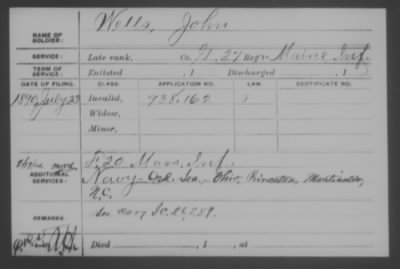 NAME OF SOLDIER: Wells, John
SERVICE: Late rank, Co. H, 27 Reg't Maine Inf.
TERM OF SERVICE: Enlisted , 1 Discharged , 1
DATE OF FILING. CLASS. APPLICATION NO. LAW. CERTIFICATE NO.
1890 July 23 Invalid, 938.162
Widow,
Minor,
F. 20 Mass. Inf.
ADDITIONAL SERVICES: Navy - Ord. Sea. - Ohio, Princeton,
N.C.
See Navy S.C. 26,289.
REMARKS:
Died , 1 , at